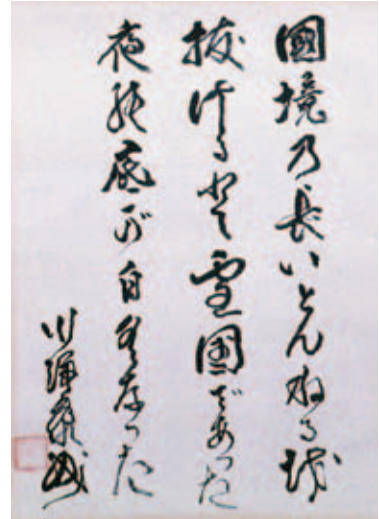 國境乃長いとんねる越
抜けると雪國であった
夜の底が白くなった
川端康成